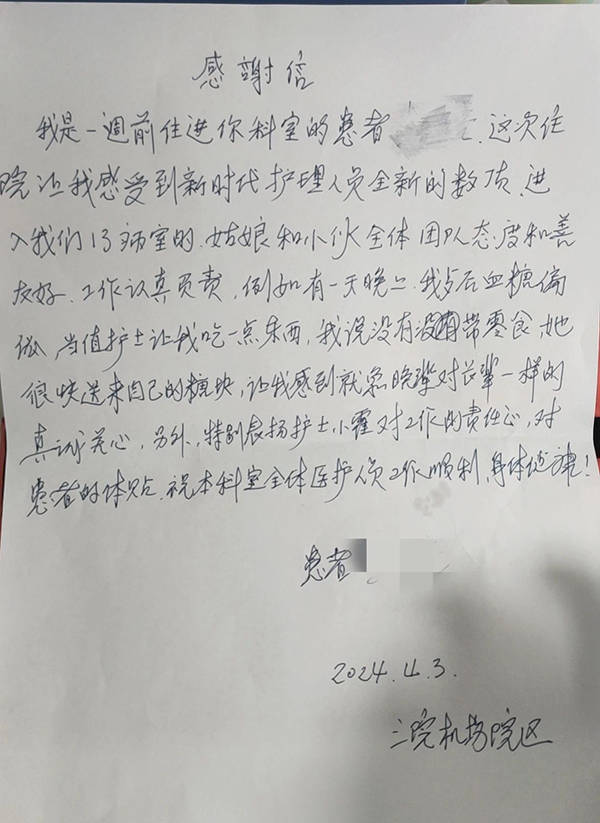 感謝信
我是一週前住进你科室的患者 这次住
院让我感受到新时代护理人员全新的数项、进
入我们13病室的、姑娘和小伙全体团队态度和善
友好、工作认真负责,例如有一天晚上、我后血糖偏
低,当值护士让我吃一点东西,我说没有没有带零食,她
很快送来自己的糖块,让我感到就象晚辈对长辈一样的
真诚关心,另外,特别表扬护士小霍对工作的责任心,对
患者的体贴、祝本科室全体医护人员工作顺利,身体健康!
患者
2024.4.3.
三院机场院区